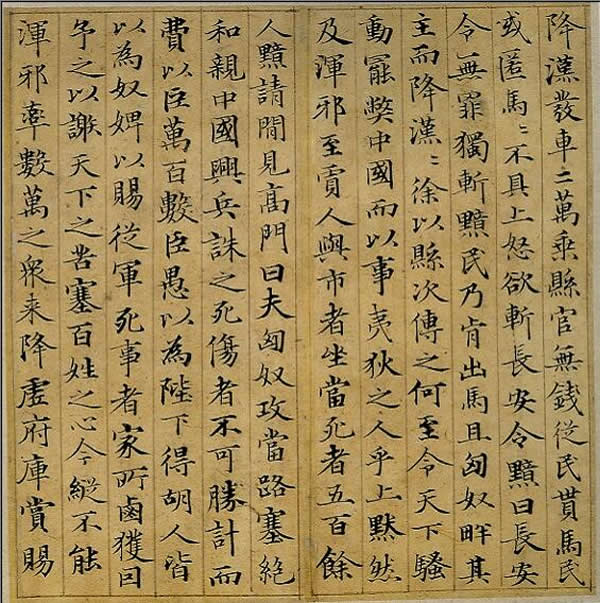 降漢發車二萬乘縣官無錢從民貰馬民
或匿馬〻不具上怒欲斬長安令黯曰長安
令無罪獨斬黯民乃肯出馬且匈奴畔其
主而降漢〻徐以縣次傳之何至令天下騷
動罷弊中國而以事夷狄之人乎上默然
及渾邪至賈人與市者坐當死者五百餘
人黯請閒見高門曰夫匈奴攻當路塞絕
和親中國興兵誅之死傷者不可勝計而
費以巨萬百數臣愚以為陛下得胡人皆
以為奴婢以賜從軍死事者家所鹵獲因
予之以謝天下之苦塞百姓之心今縱不能
渾邪率數萬之眾来降虛府庫賞賜